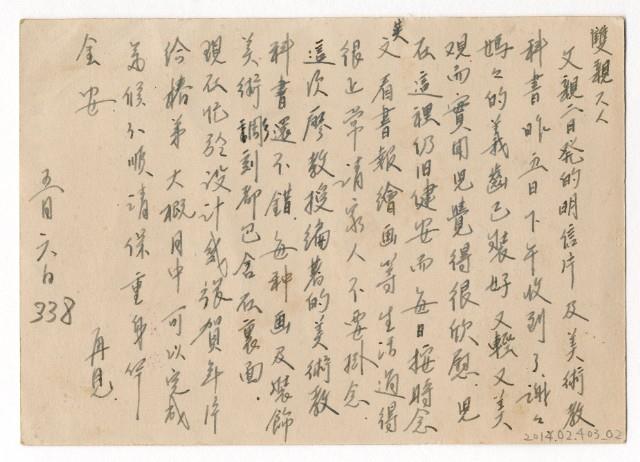 雙親大人
父親二日発的明信片及美術教
科書昨五日下午收到了謝々
媽々的義齒已裝好又輕又美
观而實用児覺得很欣慰児
在這裡仍旧健安而每日按時念
英文看書報繪画等生活過得
很上常請家人不要掛念
這次廖教授編著的美術教
科書還不錯每种画及裝飾
美術雕刻都已含在裏面
現在忙於設計幾張賀年片
給椿弟大概月中可以完成
氣候不順請保重身体
金安
再見
五月六日
338
2014.02.403_02